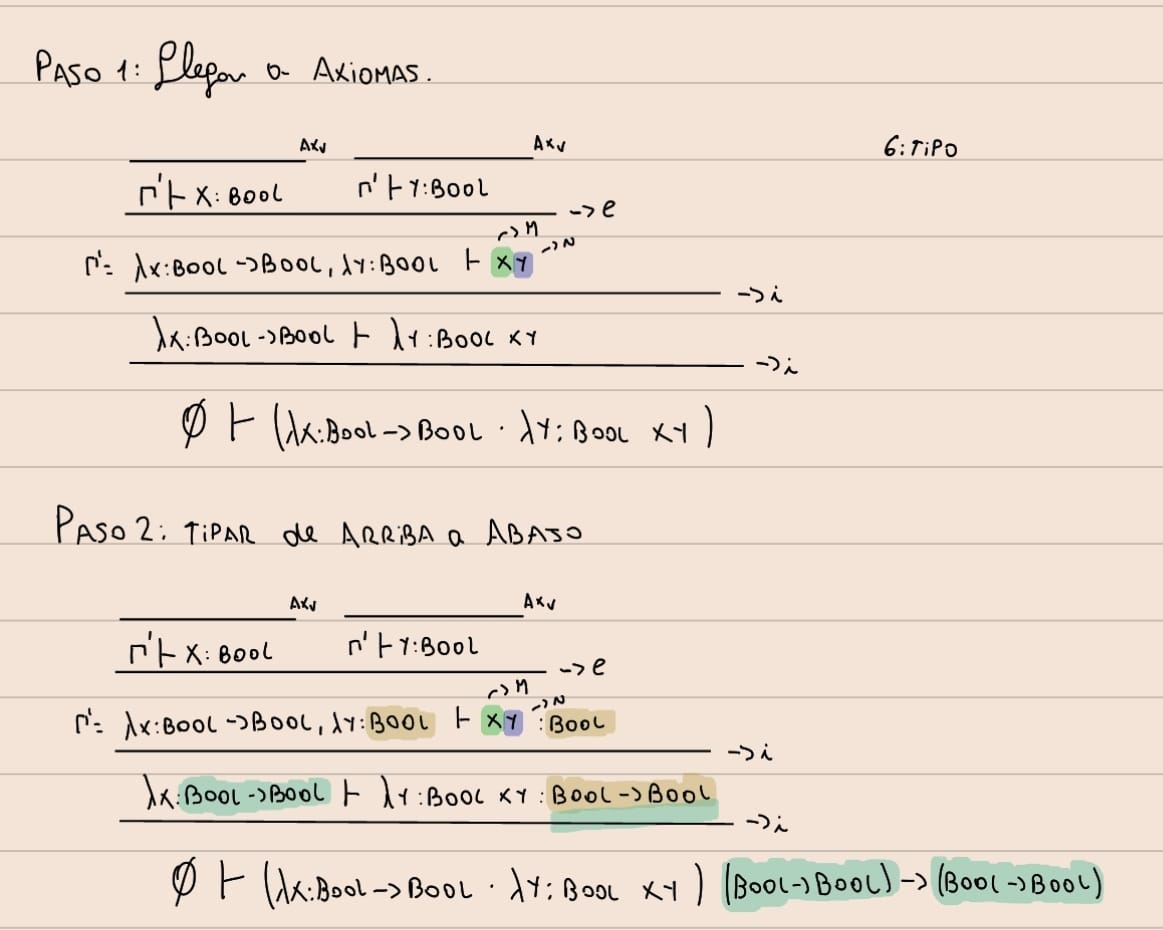 PASO 1: Llegar a AXIOMAS.
Axv Axv 6: TIPO
Γ' ⊢ X: BOOL Γ' ⊢ Y: BOOL
->e
-> M -> N
Γ'= λX: BOOL -> BOOL, λY: BOOL ⊢ XY
->i
λX: BOOL -> BOOL ⊢ λY: BOOL XY
->i
Ø ⊢ (λX: BOOL -> BOOL · λY: BOOL XY)
PASO 2: TIPAR de ARRIBA a ABAJO
Axv Axv
Γ' ⊢ X: BOOL Γ' ⊢ Y: BOOL
->e
-> M -> N
Γ'= λX: BOOL -> BOOL, λY: BOOL ⊢ XY : BOOL
->i
λX: BOOL -> BOOL ⊢ λY: BOOL XY : BOOL -> BOOL
->i
Ø ⊢ (λX: BOOL -> BOOL · λY: BOOL XY) (BOOL -> BOOL) -> (BOOL -> BOOL)